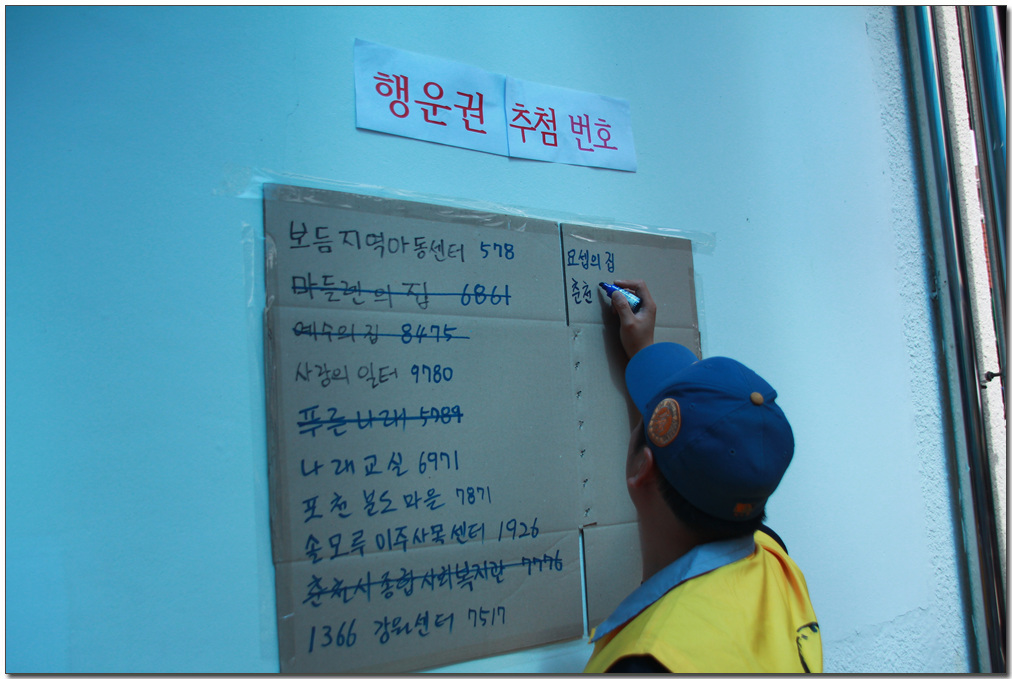 행운권 추첨 번호
보듬지역아동센터 578
마들렌의 집 6861
예수의 집 8475
사랑의 일터 9780
푸른나래 5789
나래교실 6971
포천 분도마을 7871
솔모루 이주사목센터 1926
춘천시종합사회복지관 7776
1366 강원센터 7517
요셉의 집
춘천